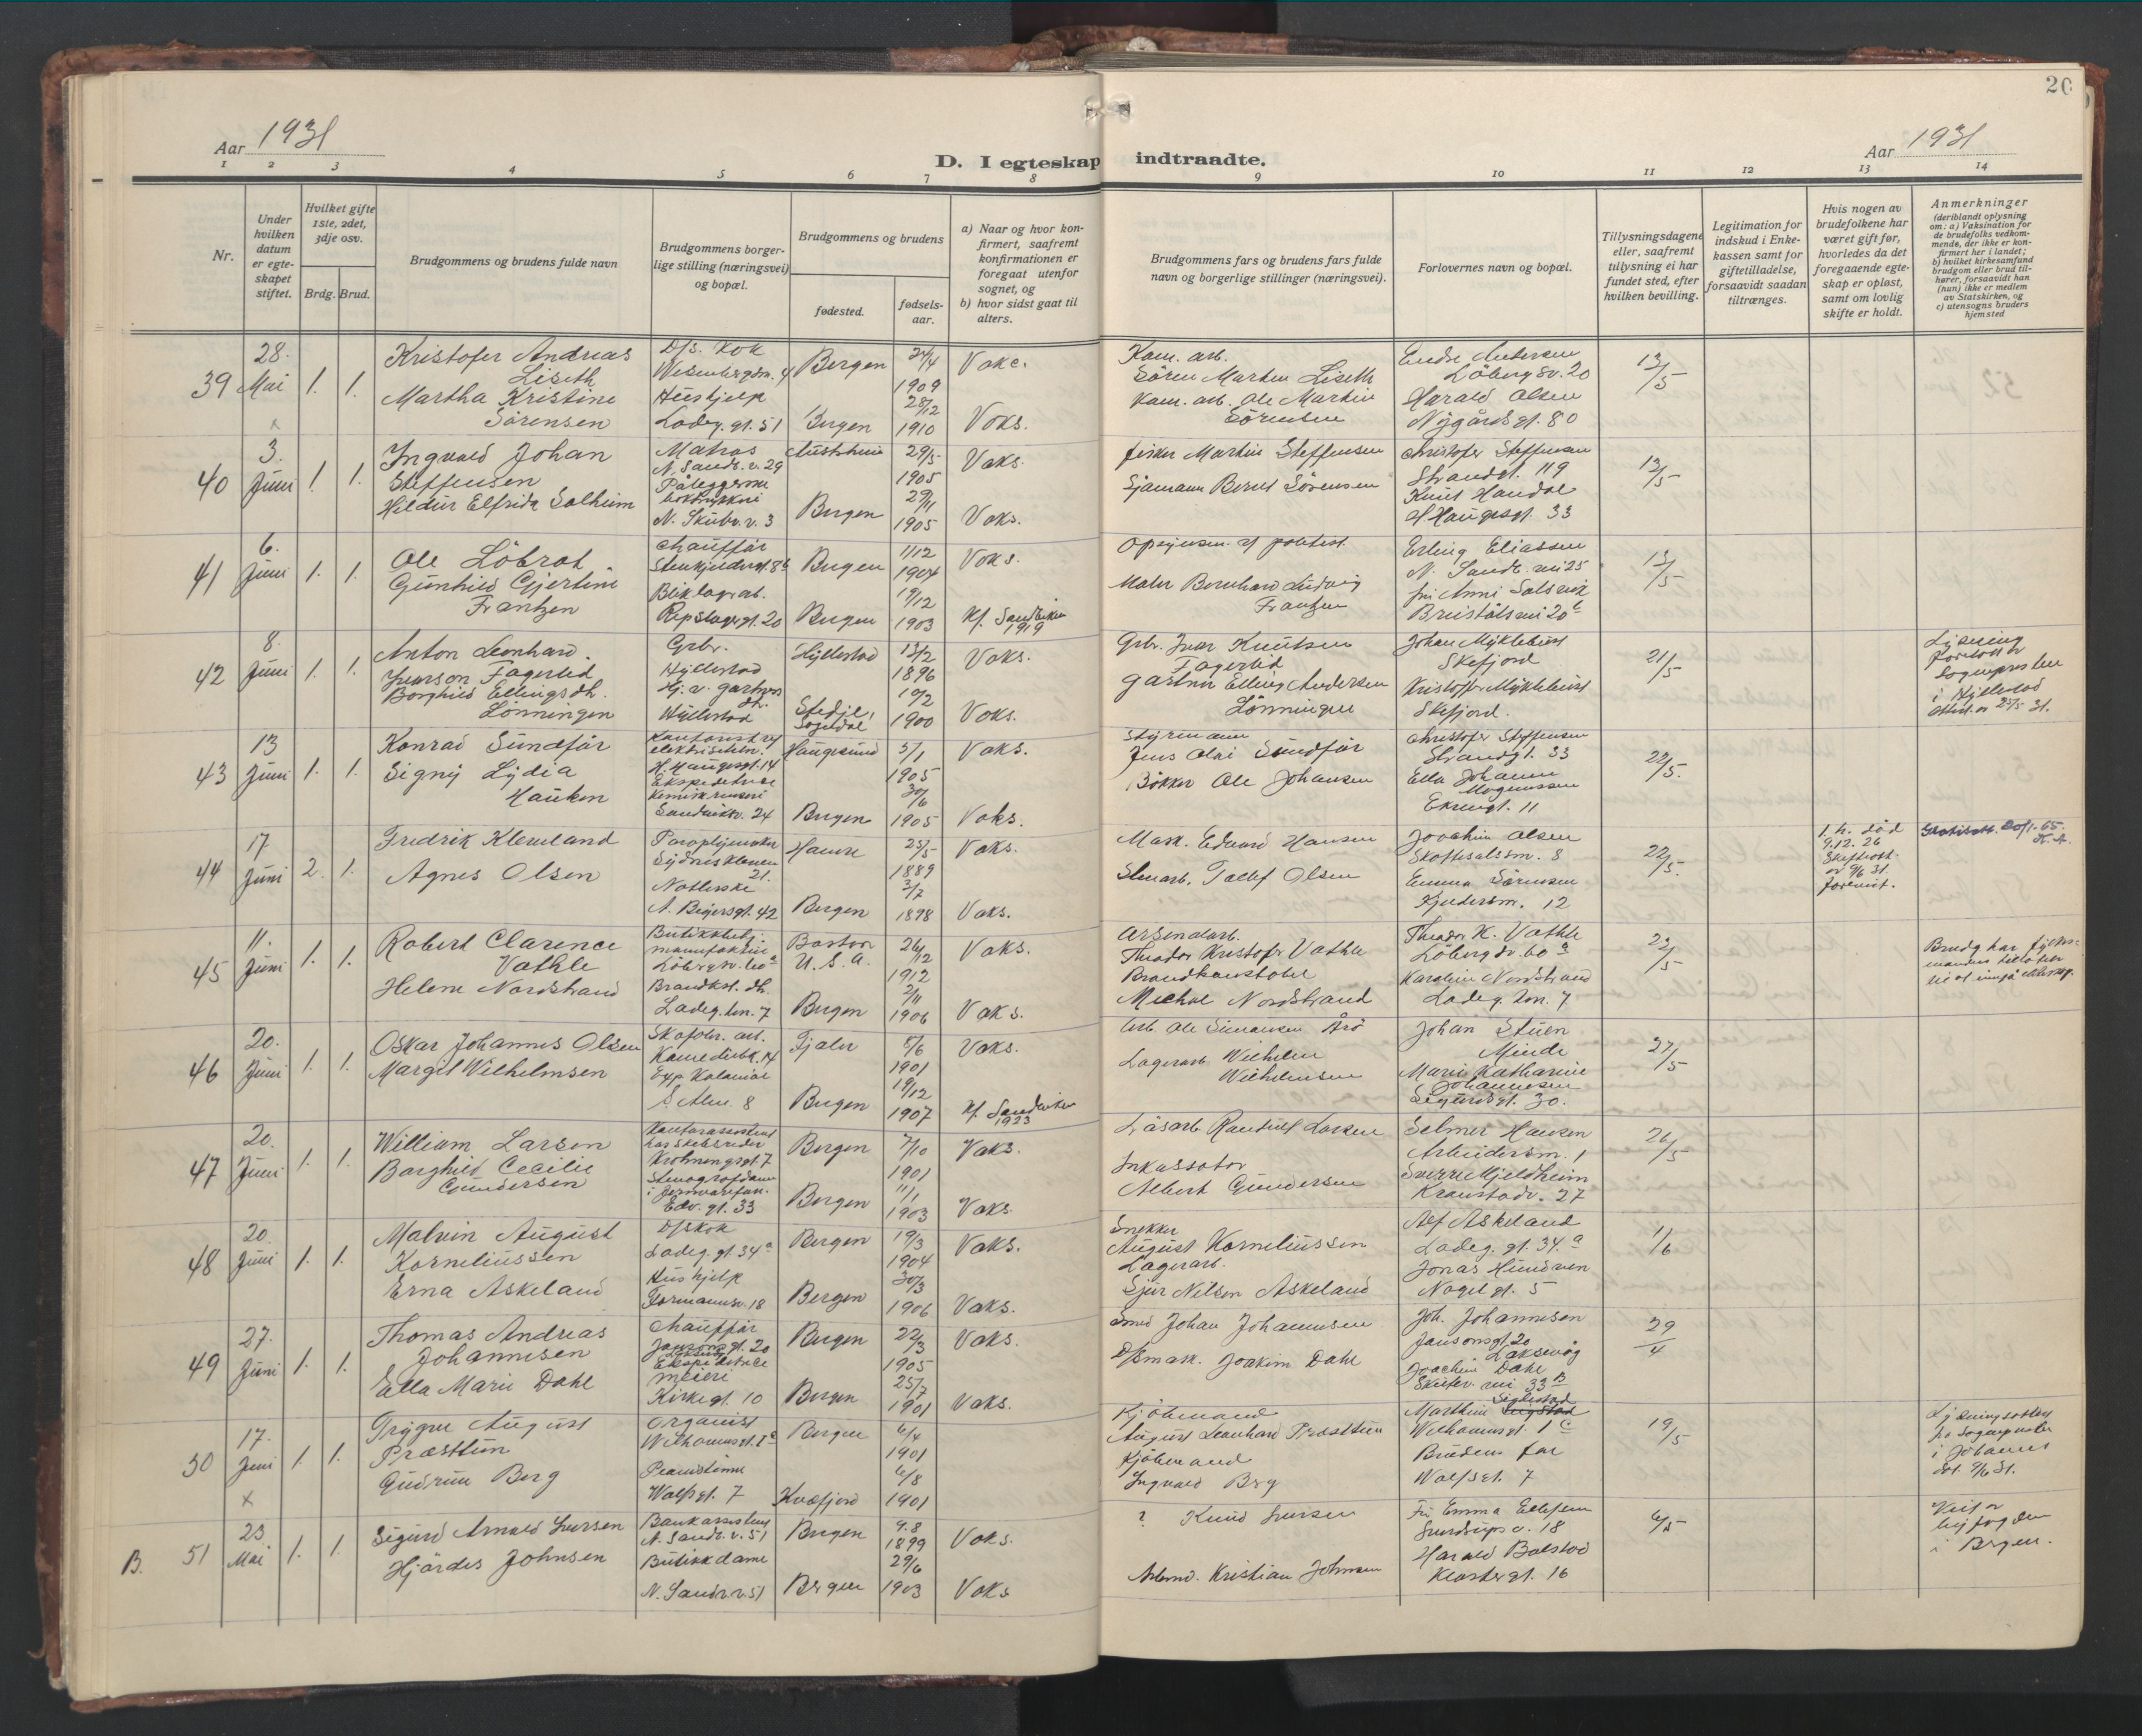 20
Aar 1931
D. I egteskap indtraadte.
Aar 1931
1 2 3 4 5 6 7 8 9 10 11 12 13 14
Nr.
Under hvilken datum er egte-skapet stiftet.
Hvilket gifte 1ste, 2det, 3dje osv.
Brdg. Brud.
Brudgommens og brudens fulde navn
Brudgommens borger-lige stilling (næringsvei) og bopæl.
Brudgommens og brudens
fødested.
fødsels-aar.
a) Naar og hvor kon-firmert, saafremt konfirmationen er foregaat utenfor sognet, og
b) hvor sidst gaat til alters.
Brudgommens fars og brudens fars fulde navn og borgerlige stillinger (næringsvei).
Forlovernes navn og bopæl.
Tillysningsdagene eller, saafremt tillysning ei har fundet sted, efter hvilken bevilling.
Legitimation for indskud i Enke-kassen samt for giftetilladelse, forsaavidt saadan tiltrænges.
Hvis nogen av brudefolkene har været gift før, hvorledes da det foregaaende egte-skap er opløst, samt om lovlig skifte er holdt.
Anmerkninger
(deriblandt oplysning om: a) Vaksination for de brudefolks vedkom-mende, der ikke er kon-firmert her i landet; b) hvilket kirkesamfund brudgom eller brud til-hører, forsaavidt han (hun) ikke er medlem av Statskirken, og c) utensogns bruders hjemsted
39 28. Mai 1. 1.
Kristofer Andreas Liseth
D/s. kok
Bergen 24/4 1909 Voks.
Martha Kristine Sørensen
Hushjelp
Ladeg. gt. 51
Bergen 28/12 1910 Voks.
Kom. arb.
Søren Martin Liseth
Kom. arb. Ole Martin Sørensen
Endre Andersen
Löbergsv. 20
Harald Olsen
Nygårdsgt. 80
13/5
40 3. Juni 1. 1.
Ingvald Johan Steffensen
Matros
N. Sandv. v. 29
Austrheim 29/5 1905 Voks.
Hildur Elfrida Solheim
Påleggerske
boktrykkeri
N. Skutev. v. 3
Bergen 29/11 1905 Voks.
fisker Martin Steffensen
Sjømann Bernt Sørensen
Christofer Steffensen
Strandgt. 119
Knut Handal
H. Haugesgt. 33
13/5
41 6. Juni 1. 1.
Ole Löbrot
Chauffør
Bergen 1/12 1904 Voks.
Gunhild Gjertine Frantzen
Repslagergt. 20
Bergen 1903 Kf. Sandviken 1919
Opsynsm. v/ politiet.
Maler Bernhard Ludvig Frantzen
Erling Eliassen
N. Sandv. vei 25
frk Anni Solsvik
13/5
42 8. Juni 1. 1.
Anton Leonhard Ivarson Fagerlid
Grbr.
Hyllestad
Hyllestad 13/2 1896 Voks.
Borghild Ellingsdtr. Lönningen
Hyllestad
Stedje, Sogndal 10/2 1900 Voks.
Grbr. Ivar Knutsen Fagerlid
Gartner Elling Andersen Lönningen
Johan Myklebust
Skifjord
Kristoffer Myklebust
Skifjord.
21/5
Lysning foretatt av Sognepresten i Hyllestad Attest av 25/5 31.
43 13 Juni 1. 1.
Konrad Sundfør
Kontorist v/
H. Haugesgt. 14
Haugesund 5/1 1905 Voks.
Signy Lydia Hauken
Ekspeditrise
Sandviksv. 24
Bergen 30/6 1905 Voks.
Styrmann
Jens Olai Sundför
Bøkker Ole Johansen
Christofer Steffensen
Strandgt. 33
Ella Johanne Mogenssen
Ekrengt. 11
22/5.
44 17 Juni 2. 1.
Fredrik Kleveland
Paraplymaker
Sydneskleven 21.
25/5 1889 Voks.
Agnes Olsen
N. Beyersgt. 42
Bergen 3/7 1898 Voks.
Mask. Edvard Hansen
Stenarb. Tallef Olsen
Joachim Olsen
Skottesalssm. 8
Emma Sørensen
Kjedersm. 12
22/5.
1. h. död 9.12.26
Skifteatt. av 9/6 31.
45 11. Juni 1. 1.
Robert Clarence Vathle
Boston U.S.A. 26/12 1912 Voks.
Helene Nordstrand
Brandkst. dh.
Ladeg. bm. 7
Bergen 2/11 1906 Voks.
Arsenalarb.
Theodor Kristofer Vathle
Brandkonstabel
Michael Nordstrand
Theodor K. Vathle
Löbergsv. 60a
Karoline Nordstrand
Ladeg. bm. 7
22/5
46 20. Juni 1. 1.
Oskar Johannes Olsen
Skofabr. arb.
Komediebk. 14
Fjaler 5/6 1901 Voks.
Margit Wilhelmsen
Exp Kolonial
Bergen 19/12 1907 Kf. Sandviken 1923
Arb. Ole Simonsen Årö
Lagerarb. Wilhelm Wilhelmsen
Johan Stuen
Minde
Marie Katharine Johannessen
Sigurdsgt. 30.
27/5
47 20. Juni 1. 1.
William Larsen
Kontorassistent
Krohnengsgt. 7
Bergen 7/10 1901 Voks.
Borghild Cecilie Gundersen
Stenografdame
i jernvareforr.
Edv. gt. 33
Bergen 11/1 1903 Voks
Låsarb. Randulf Larsen
Inkassator
Albert Gundersen
Selmer Hansen
Arbeidersm. 1
Sverre Mjeldheim
Kranstadv. 27
26/5
48 20. Juni 1. 1.
Malvin August Korneliussen
D/skok
Ladeg. gt. 34a
Bergen 19/3 1904 Voks.
Erna Askeland
Hushjelp
Formannsv. 18
Bergen 30/3 1906 Voks.
Snekker
August Korneliussen
Lagerarb.
Sjur Nilsen Askeland
Alf Askeland
Ladeg. gt. 34.a
Jonas Hundven
Nagel gt. 5
11/6
49 27. Juni 1. 1.
Thomas Andreas Johannesen
Chauffør
Jansonsgt. 20
Bergen 22/3 1905 Voks.
Ella Marie Dahl
Ekspeditrice
meieri
Kirkegt. 10
Bergen 25/7 1901 Voks.
Smed Johan Johannesen
D/smask. Joakim Dahl
Joh. Johannesen
Jansonsgt. 20
Laksevåg
Joachim Dahl
Skutev. vei 33B
29/4
50 17. Juni 1. 1.
Trygve August Præsttun
Organist
Bergen 6/4 1901
Gudrun Berg
Pianistinne
Wolfsgt. 7
Kvæfjord 6/8 1901
Kjøbmand
August Leonhard Præsttun
Kjøbmand
Ingvald Berg
Marthin
Brudens far
Wolfsgt. 7
19/5
Lysningsattest fra Sogneprester i Johannes
B. 51 23 Mai 1. 1.
Sigurd Arnold Iversen
Bankassistent
N. Sandv. v. 51
Bergen 9.8 1899 Voks.
Hjørdis Johnsen
Butikkdame
N. Sandv. v. 51
Bergen 29/6 1903 Voks
? Knud Iversen
Kristian Johnsen
Fr. Emma Ellefsen
Harald Bolstad
Klostergt. 16
6/5
Viet av byfogden i Bergen.